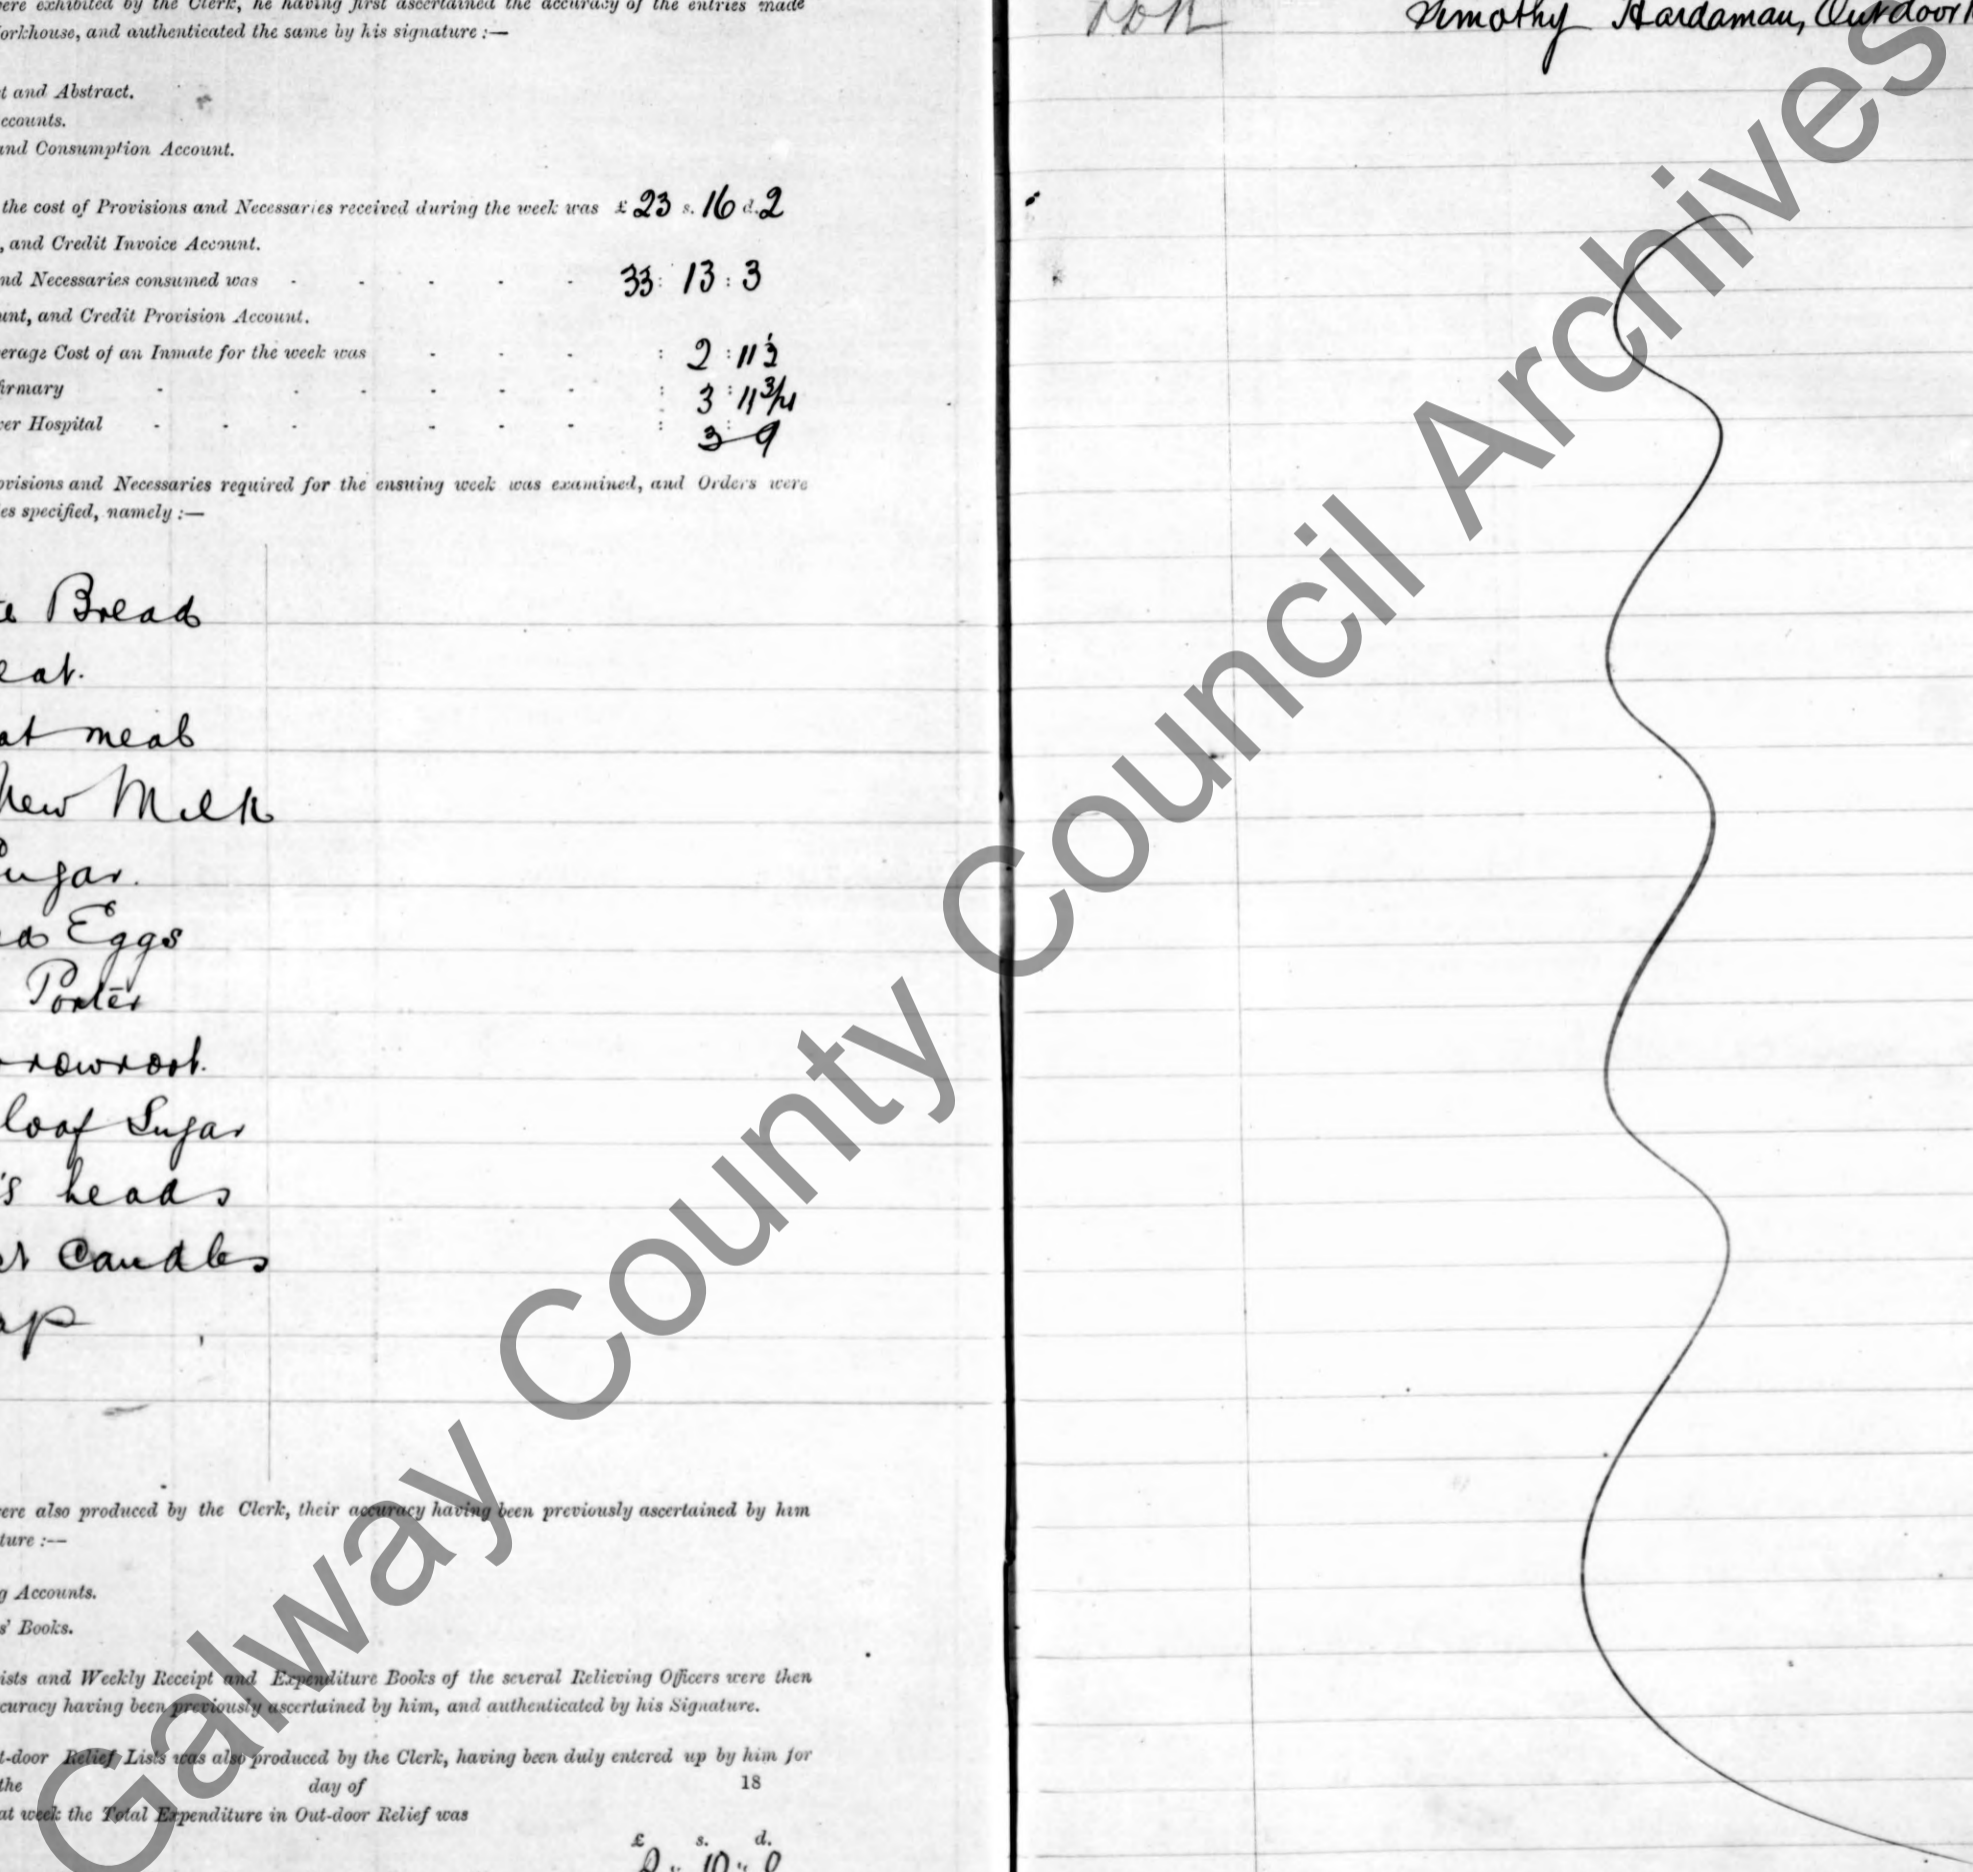 were exhibited by the Clerk, he having first ascertained the accuracy of the entries made
orkhouse, and authenticated the same by his signature :—
t and Abstract.
ccounts.
and Consumption Account.
the cost of Provisions and Necessaries received during the week was £ 23 s. 16 d. 2
, and Credit Invoice Account.
nd Necessaries consumed was - - - - - 33 : 13 : 3
unt, and Credit Provision Account.
erage Cost of an Inmate for the week was - - - : 2 : 11½
firmary - - - - - - : 3 : 11¾
er Hospital - - - - - - : 3 : 9
ovisions and Necessaries required for the ensuing week was examined, and Orders were
es specified, namely :—
Bread
eat.
at meal
New Milk
Sugar.
Eggs
Porter
rrowroot.
loaf Sugar
's heads
Candles
ap
ere also produced by the Clerk, their accuracy having been previously ascertained by him
ture :—
g Accounts.
s' Books.
ists and Weekly Receipt and Expenditure Books of the several Relieving Officers were then
curacy having been previously ascertained by him, and authenticated by his Signature.
t-door Relief Lists was also produced by the Clerk, having been duly entered up by him for
the day of 18
at week the Total Expenditure in Out-door Relief was
£ s. d.
Timothy Hardaman, Outdoor
Galway County Council Archives